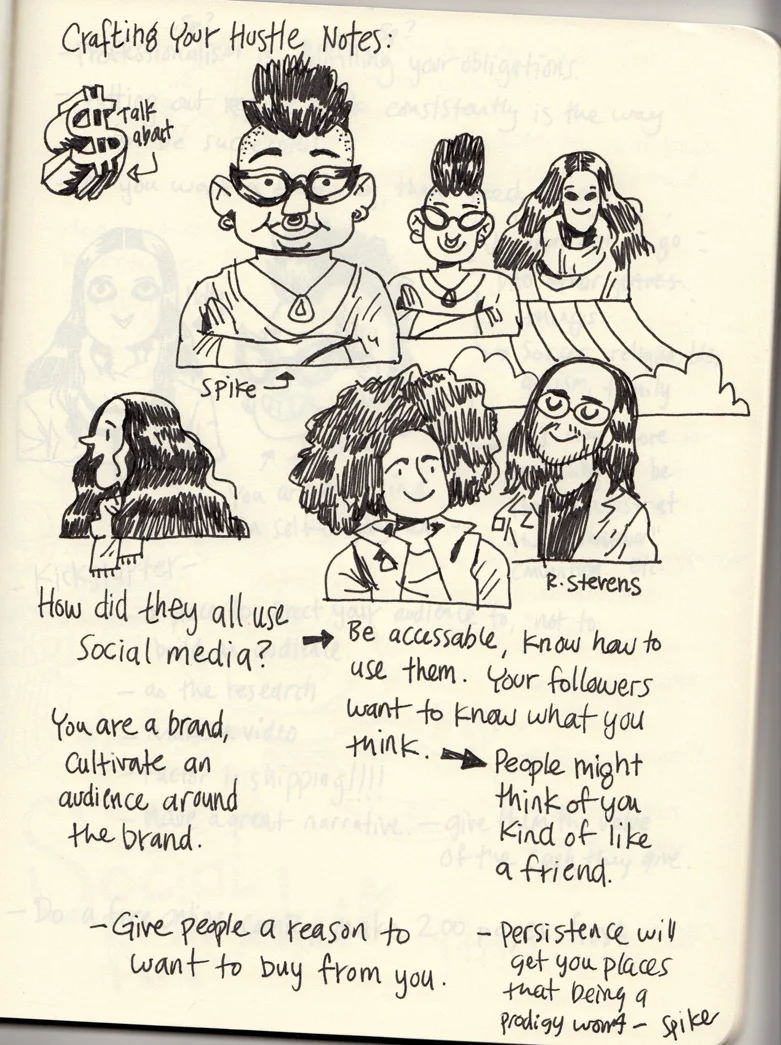 Crafting Your Hustle Notes:
Talk
about
Spike
R. Stevens
How did they all use
Social media?
Be accessable, know how to
use them. Your followers
want to know what you
think.
People might
think of you
kind of like
a friend.
You are a brand,
Cultivate an
audience around
the brand.
- Give people a reason to
want to buy from you.
- Persistence will
get you places
that being a
prodigy wont - Spike